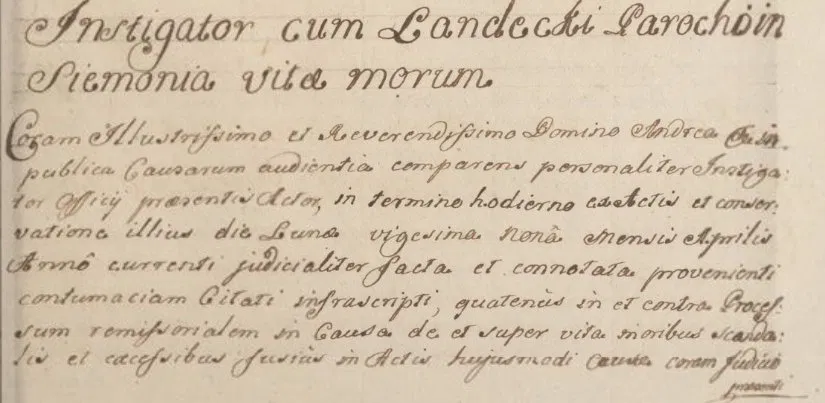 Instigator cum Landecki Parocho in
Siemonia vitæ morum
Coram Illustrissimo et Reverendissimo Domino Andrea in
publica Causarum audientia comparens personaliter Instiga:
tor Officij præsentis Actor, in termino hodierno ex Actis et conser
vatione illius die Lunæ vigesima nonâ Mensis Aprilis
Annô currenti judicialiter facta et connotata provenienti
contumaciam Citati infrascripti, quatenùs in et contra Proces:
sum remissorialem in Causa de et super vita moribus scanda:
lis et excessibus fusiùs in Actis hujusmodi Causæ coram Judicio
præsenti